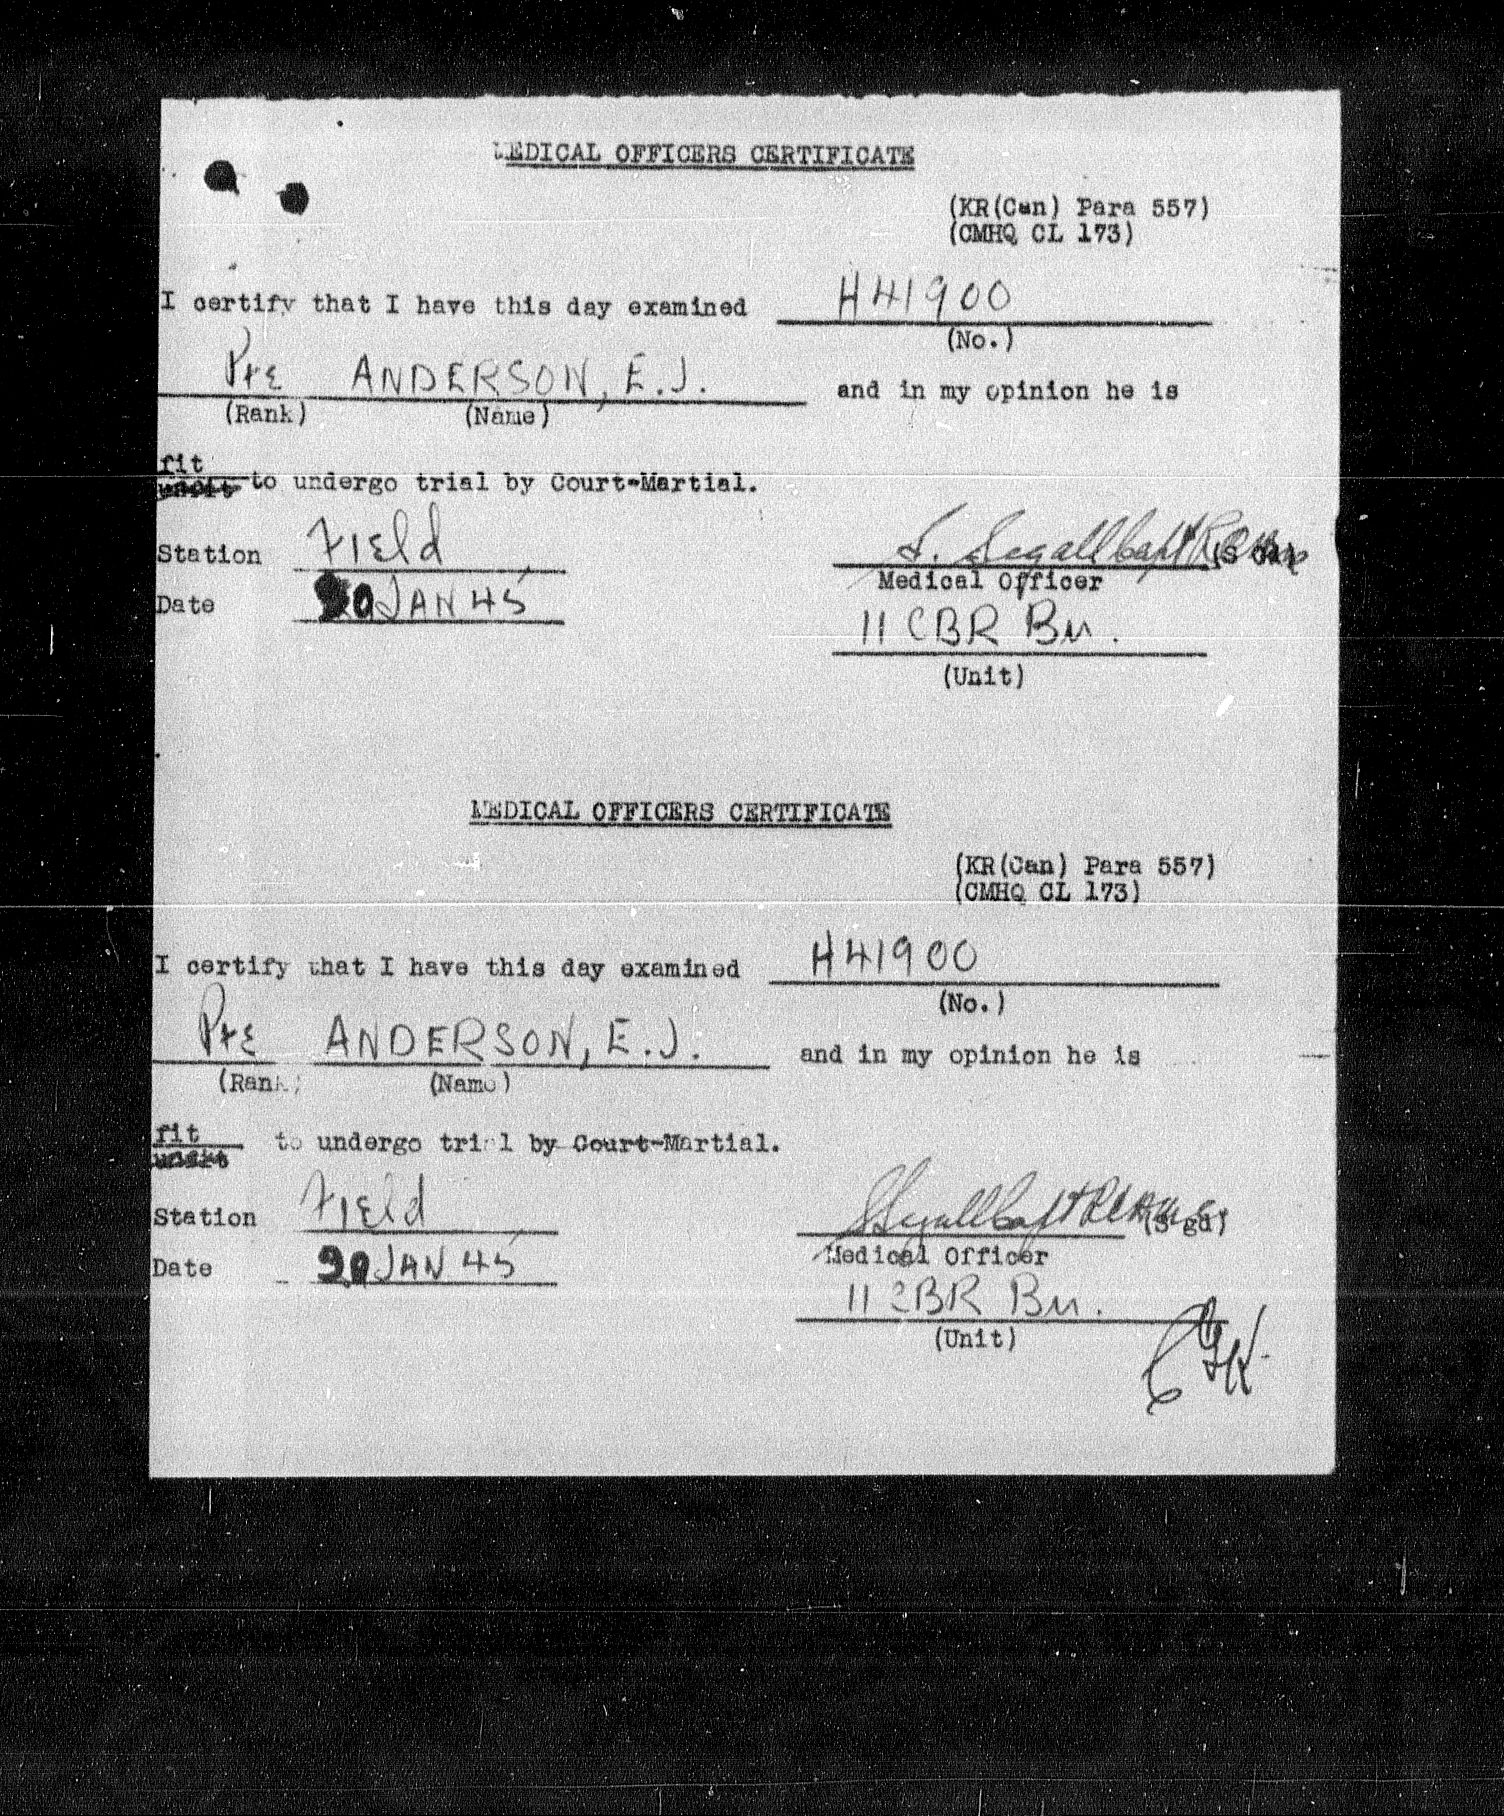 MEDICAL OFFICERS CERTIFICATE
(KR(Can) Para 557)
(CMHQ CL 173)
I certify that I have this day examined H41900
(No.)
Pte ANDERSON, E.J. and in my opinion he is
(Rank) (Name)
fit
unfit to undergo trial by Court-Martial.
Station Field S. Segall Capt RCAMC (S gd)
Medical Officer
Date 30 JAN 45
11 CBR Bn.
(Unit)
MEDICAL OFFICERS CERTIFICATE
(KR(Can) Para 557)
(CMHQ CL 173)
I certify that I have this day examined H41900
(No.)
Pte ANDERSON, E.J. and in my opinion he is
(Rank) (Name)
fit to undergo trial by Court-Martial.
unfit
Station Field SSegall Capt RCAMC (S gd)
Medical Officer
Date 30 JAN 45
11 CBR Bn.
(Unit)